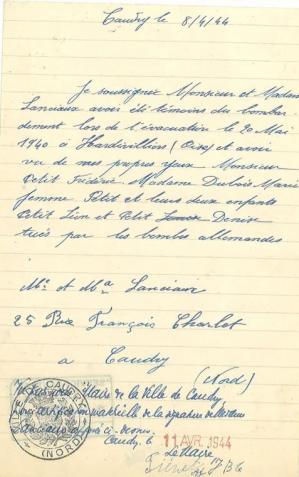 Caudry le 8/4/44
Je soussignez Monsieur et Madame
Lanciaux avoir été témoins du bombar
dement lors de l'évacuation le 20 Mai
1940 à Hardivilliers (Oise) et avoir
vu de mes propres yeux Monsieur
Petit Frédéric Madame Dubois Marie
femme Petit et leurs deux enfants
Petit Léon et Petit Denise
tués par les bombes allemandes
Mr et Ma Lanciaux
25 Rue François Charlot
à Caudry
(Nord)
Maire de la Ville de Caudry
certification matérielle de la signature de
Lanciaux apposée ci-dessus
Caudry, le 11 AVR. 1944
Le Maire
VILLE DE CAUDRY
(NORD)